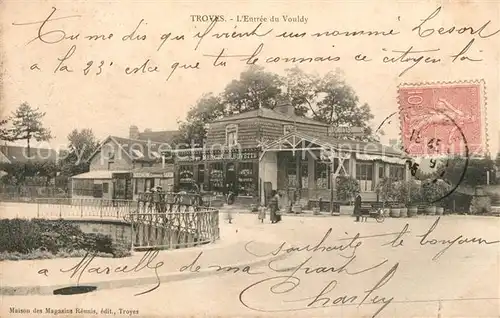 TROYES. - L'Entrée du Vouldy
Tu me dis qu'il vient un nommé Lesort
a la 23e est ce que tu connais ce citoyen là
souhaite le bonjour
a Marcel de ma part
Charley
10
Maison des Magasins Réunis, édit., Troyes